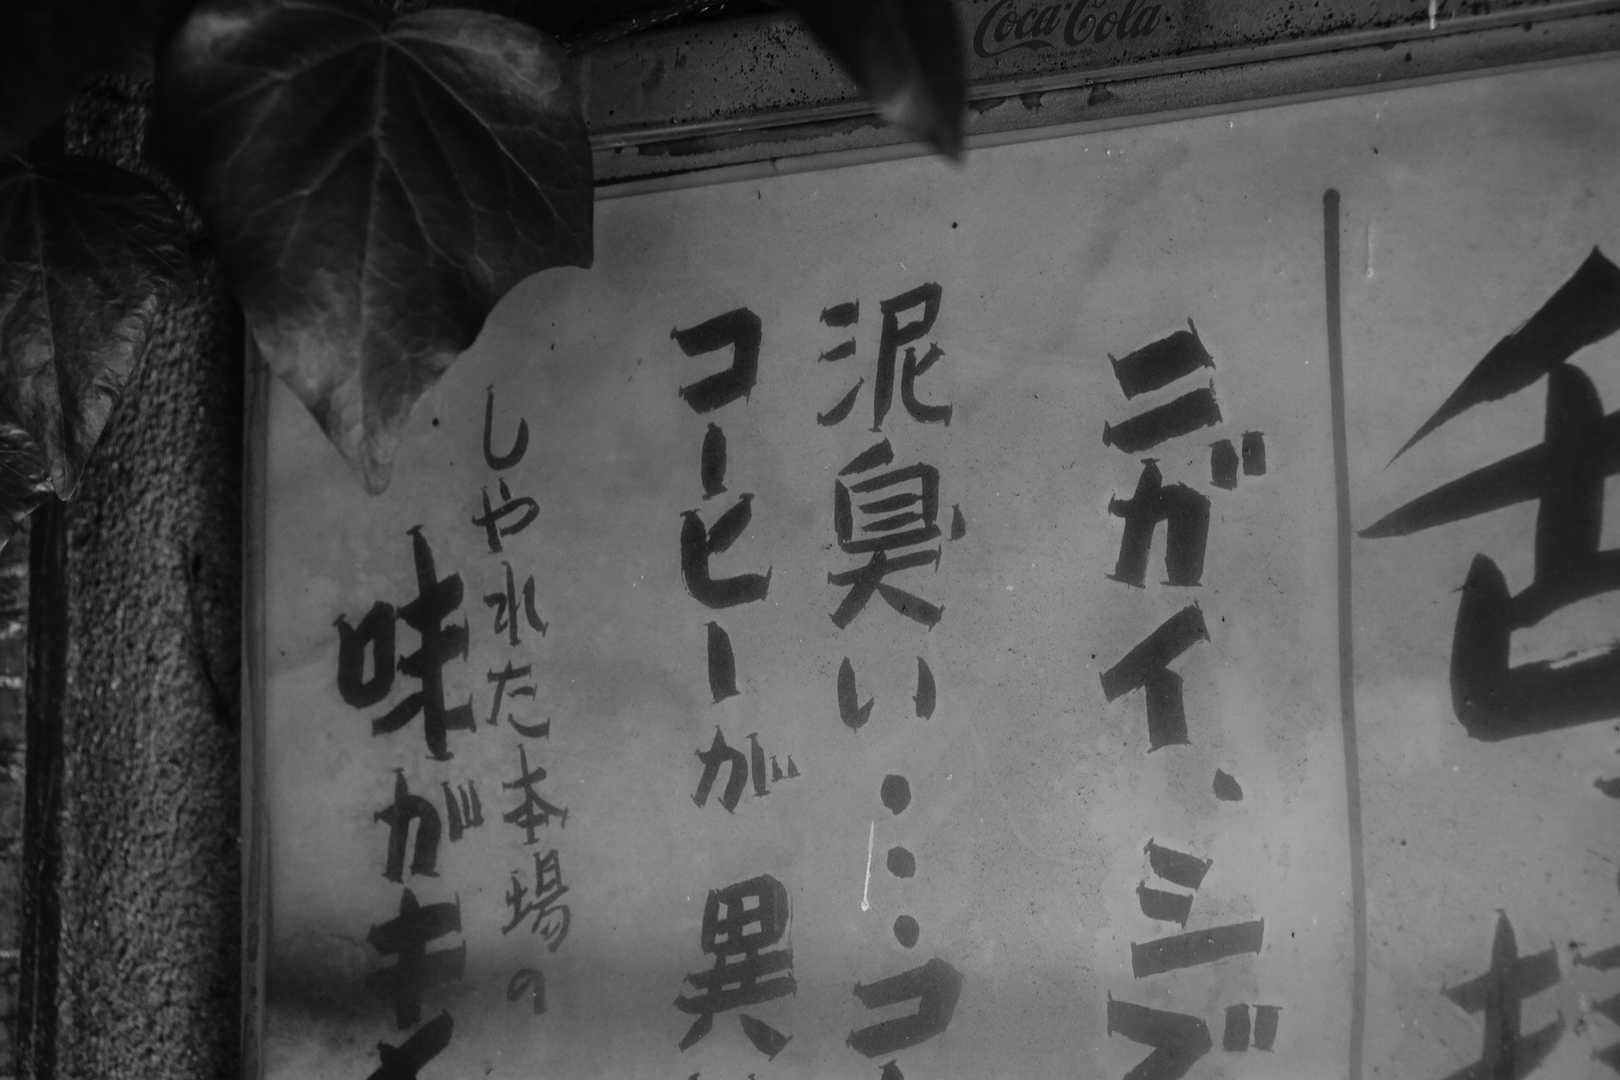 Coca-Cola
ニガイ・シブ
泥臭い…コ
コーヒーが異
しやれた本場の
味がキ